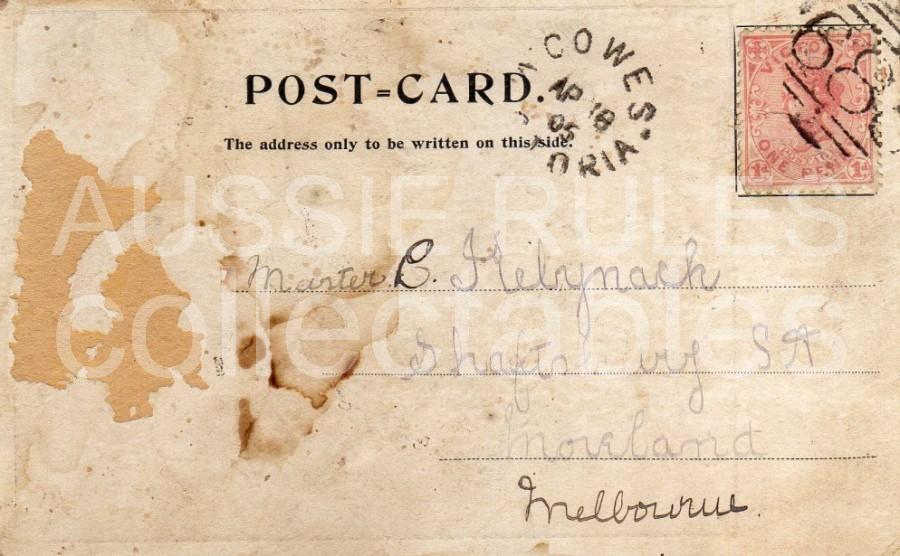 COWES
VICTORIA
AP 18
05
POST=CARD.
The address only to be written on this side.
VICTORIA
POSTAGE
ONE PENNY
1d 1d
AUSSIE RULES
collectables
Master C. Hebynack
Shaftsbury St
Moreland
Melbourne.